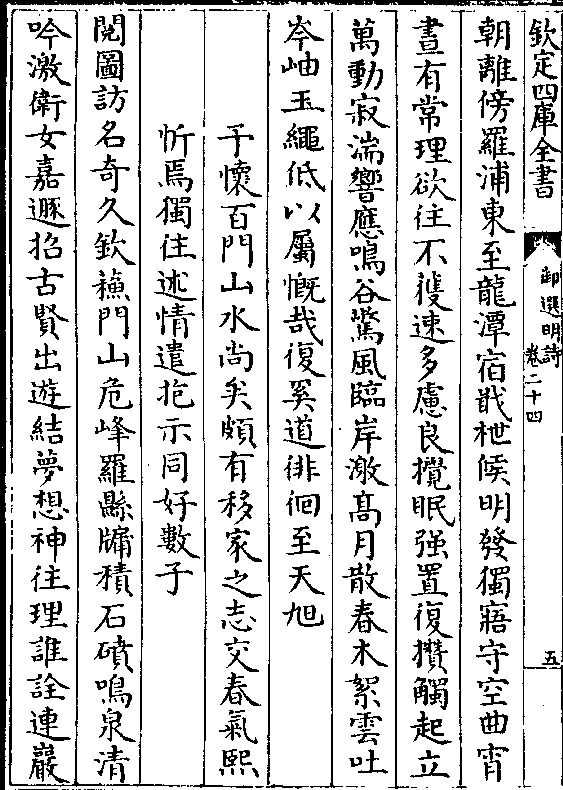 欽定四庫全書
御選明詩
卷二十四
五
朝離傍羅浦東至龍潭宿戢枻候明發獨寤守空曲宵
晝有常理欲往不獲速多慮良攪眠強置復攢觸起立
萬動寂湍響應鳴谷驚風臨岸激髙月散春木絮雲吐
岑岫玉繩低以屬慨哉復奚道徘徊至天旭
予懷百門山水尚矣頗有移家之志交春氣熙
忻焉獨往述情遣抱示同好數子
閲圖訪名奇久欽蘓門山危峰羅縣牖積石磧鳴泉清
吟激衛女嘉遯招古賢出遊結夢想神往理誰詮連巖